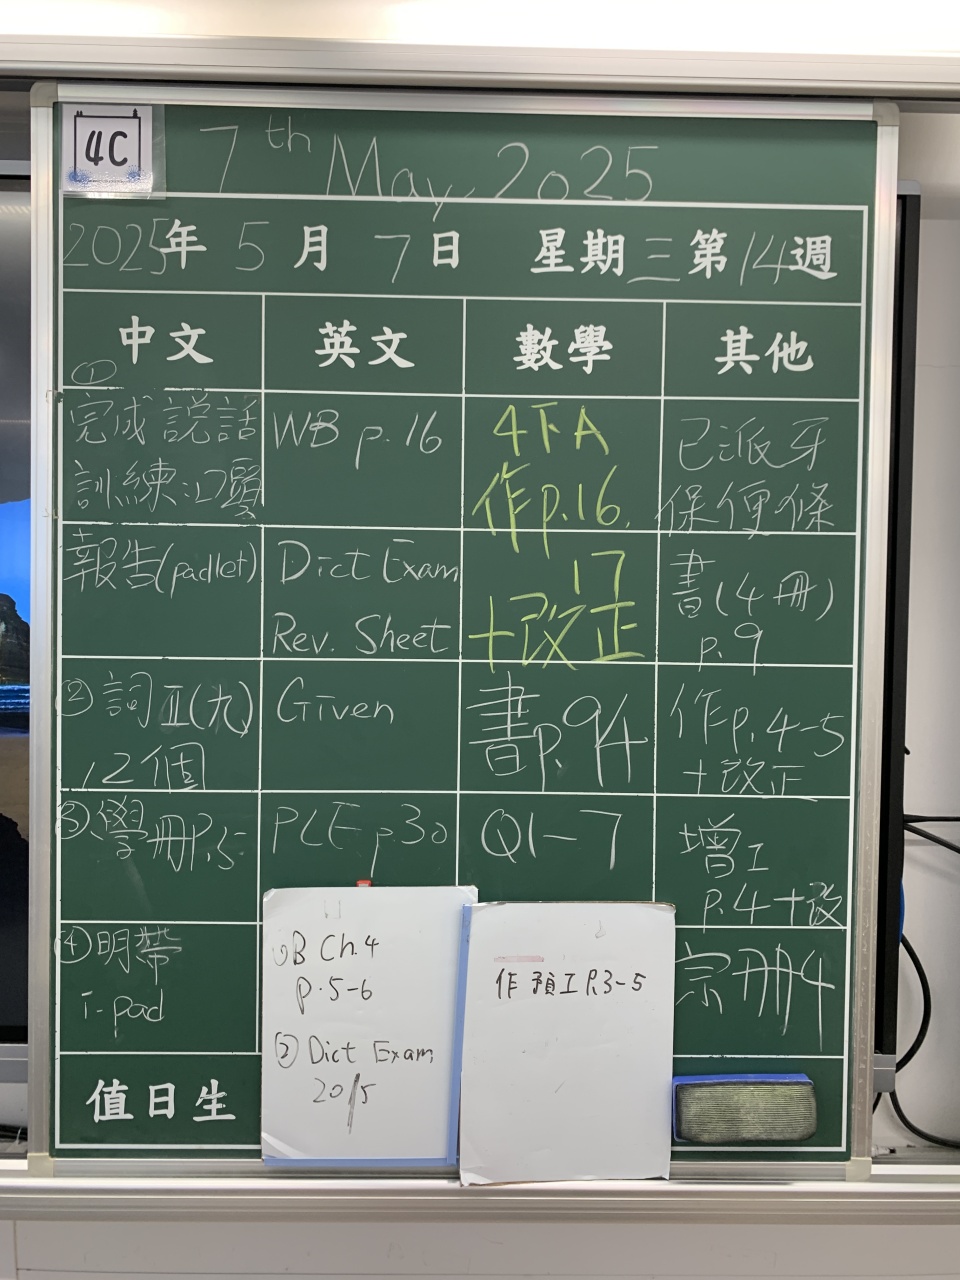 4C
7th May, 2025
2025年 5月 7日 星期三 第14週
中文
①
完成說話
訓練:口頭
報告(padlet)
②詞Ⅱ(九)
,2個
③學冊P.5
④明帶
i-pad
值日生
英文
WB p.16
Dict Exam
Rev. Sheet
Given
PLE p.30
①B Ch.4
p.5-6
② Dict Exam
20/5
數學
4下A
作p.16,
17
+改正
書p.94
Q1-7
作 預工 P.3-5
其他
已派牙
保便條
書(4冊)
p.9
作p.4-5
+改正
增工
p.4+改
宗冊4